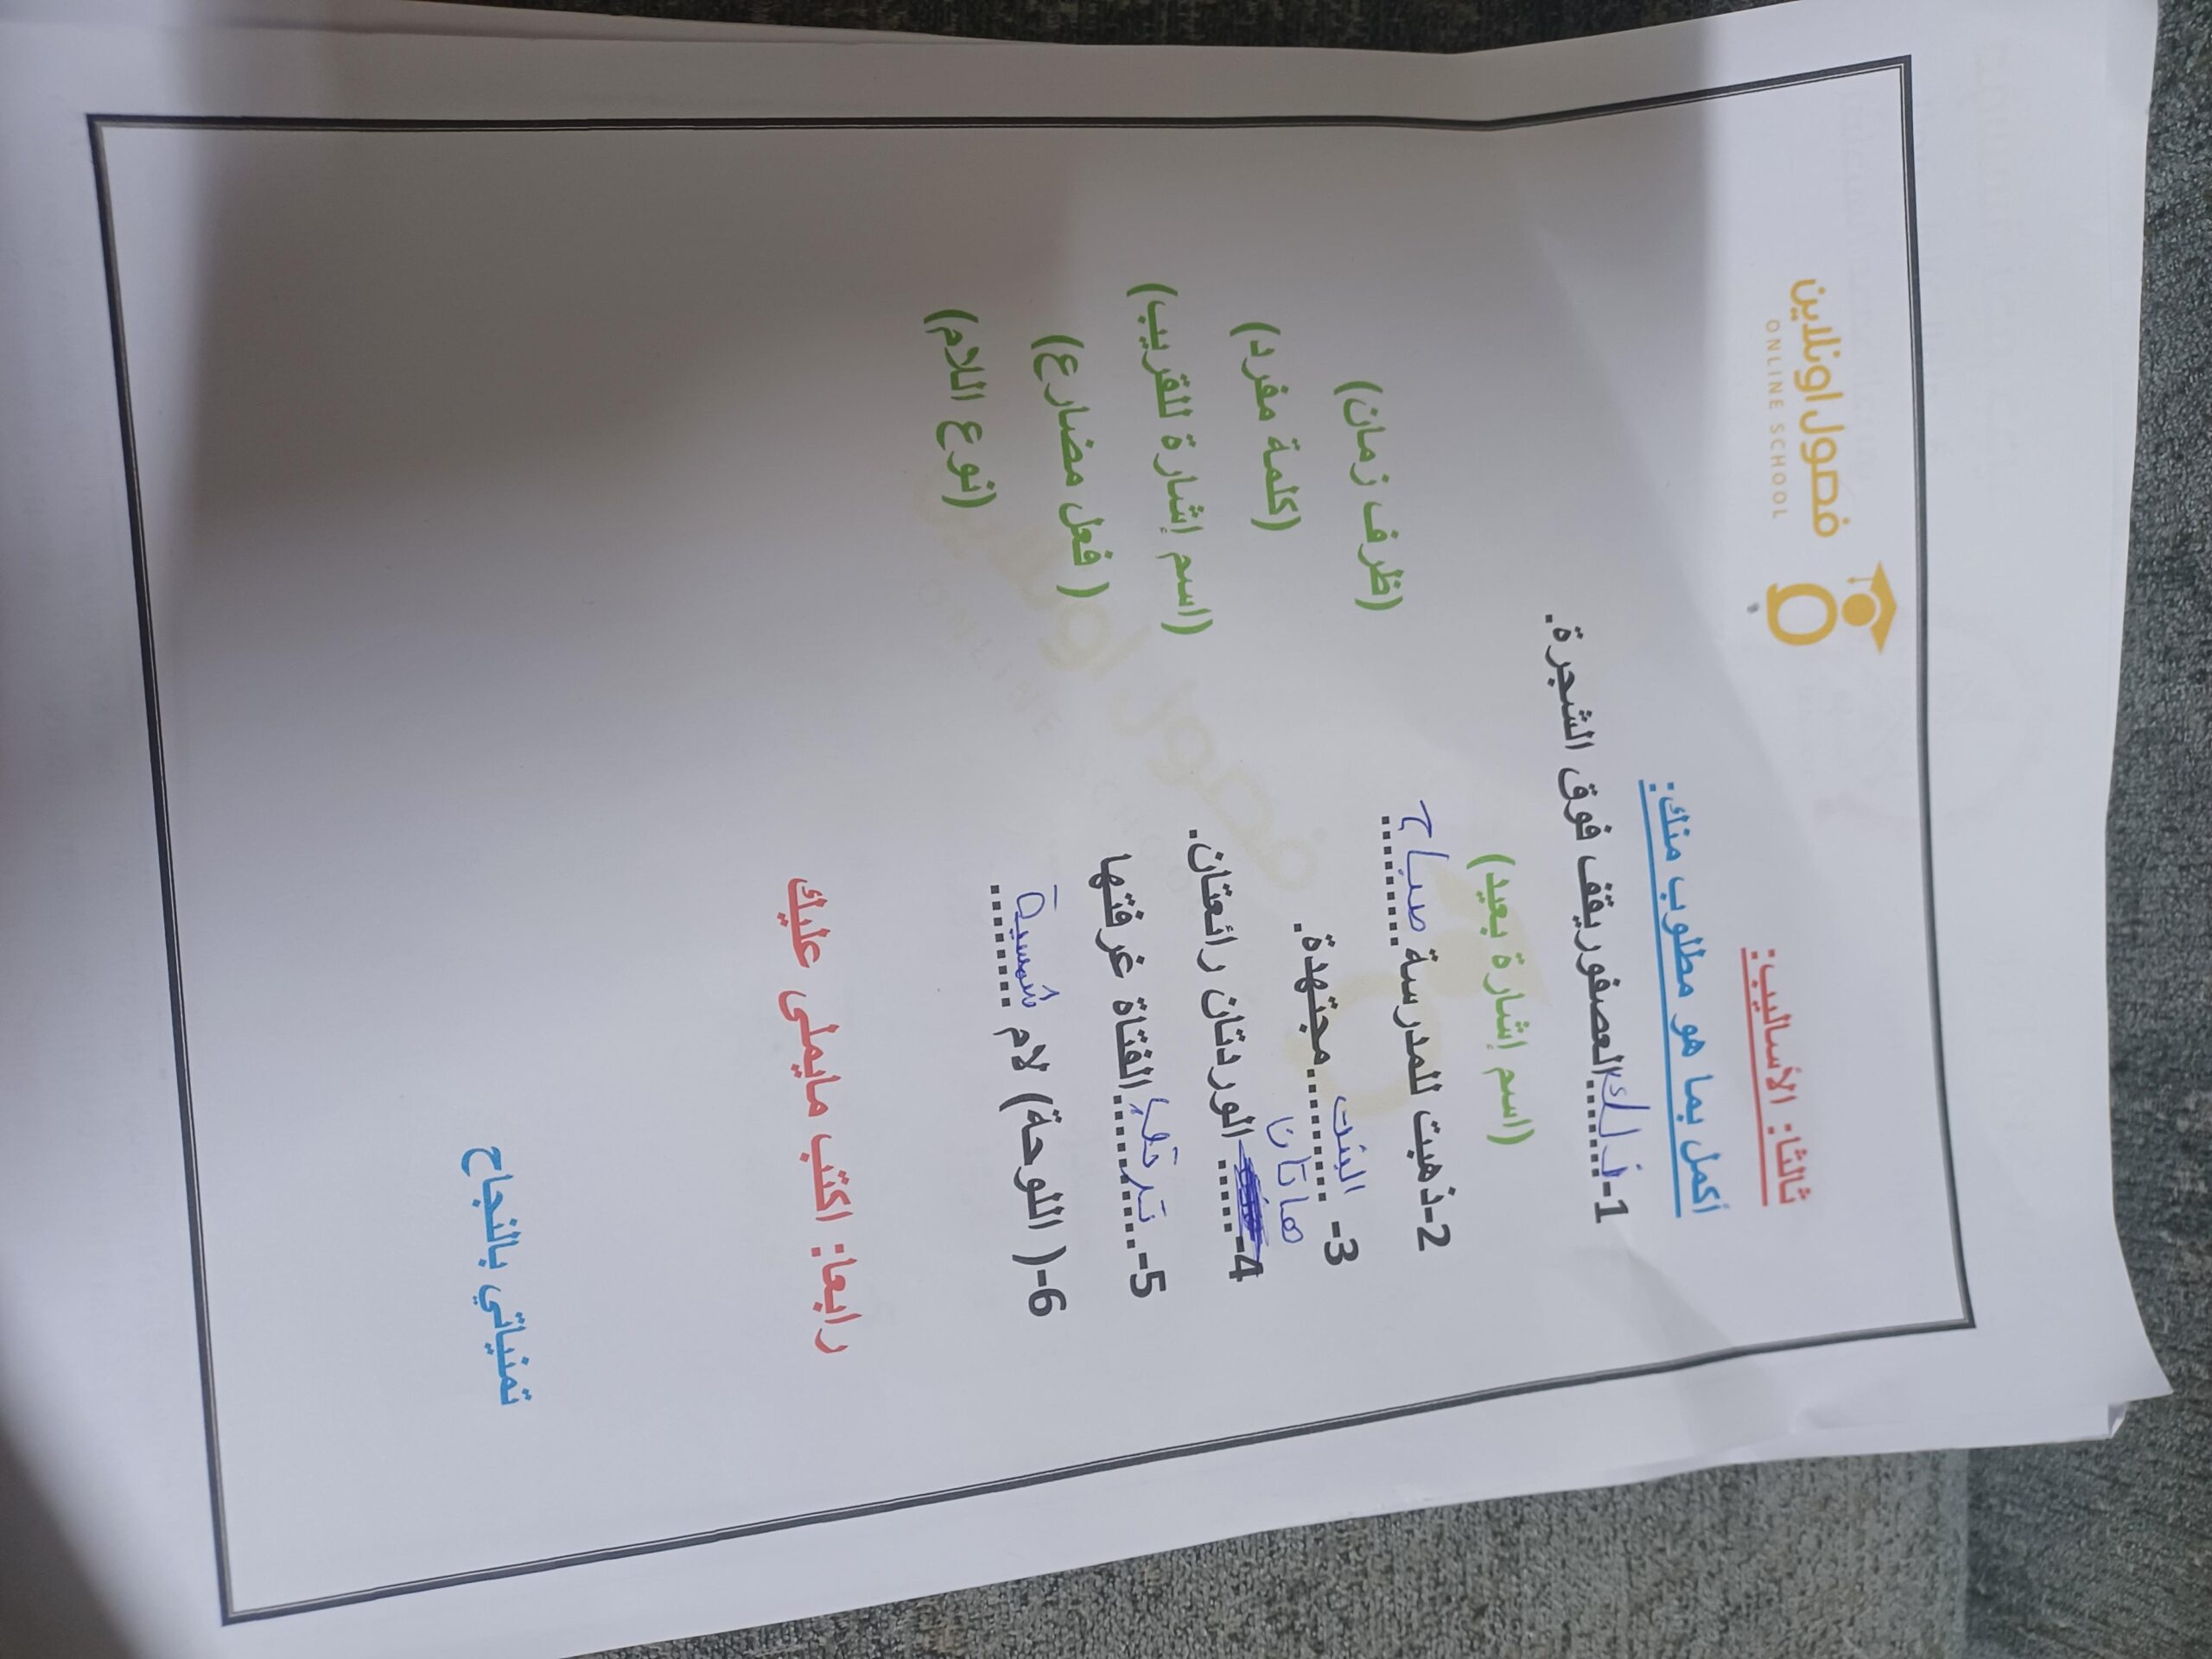 فصول اونلاين
ONLINE SCHOOL
ثالثا: الأساليب:
أكمل بما هو مطلوب منك:
1-ذلك......العصفور يقف فوق الشجرة.
(اسم إشارة بعيد)
2-ذهبت للمدرسة صباح......... (ظرف زمان)
3- البنت............ مجتهدة. (كلمة مفرد)
4-..... هاتان الوردتان رائعتان. (اسم إشارة للقريب)
5-........... الفتاة غرفتها ( فعل مضارع)
6-( اللوحة) لام شمسية......... (نوع اللام)
رابعا: اكتب مايملى عليك
تمنياتي بالنجاح